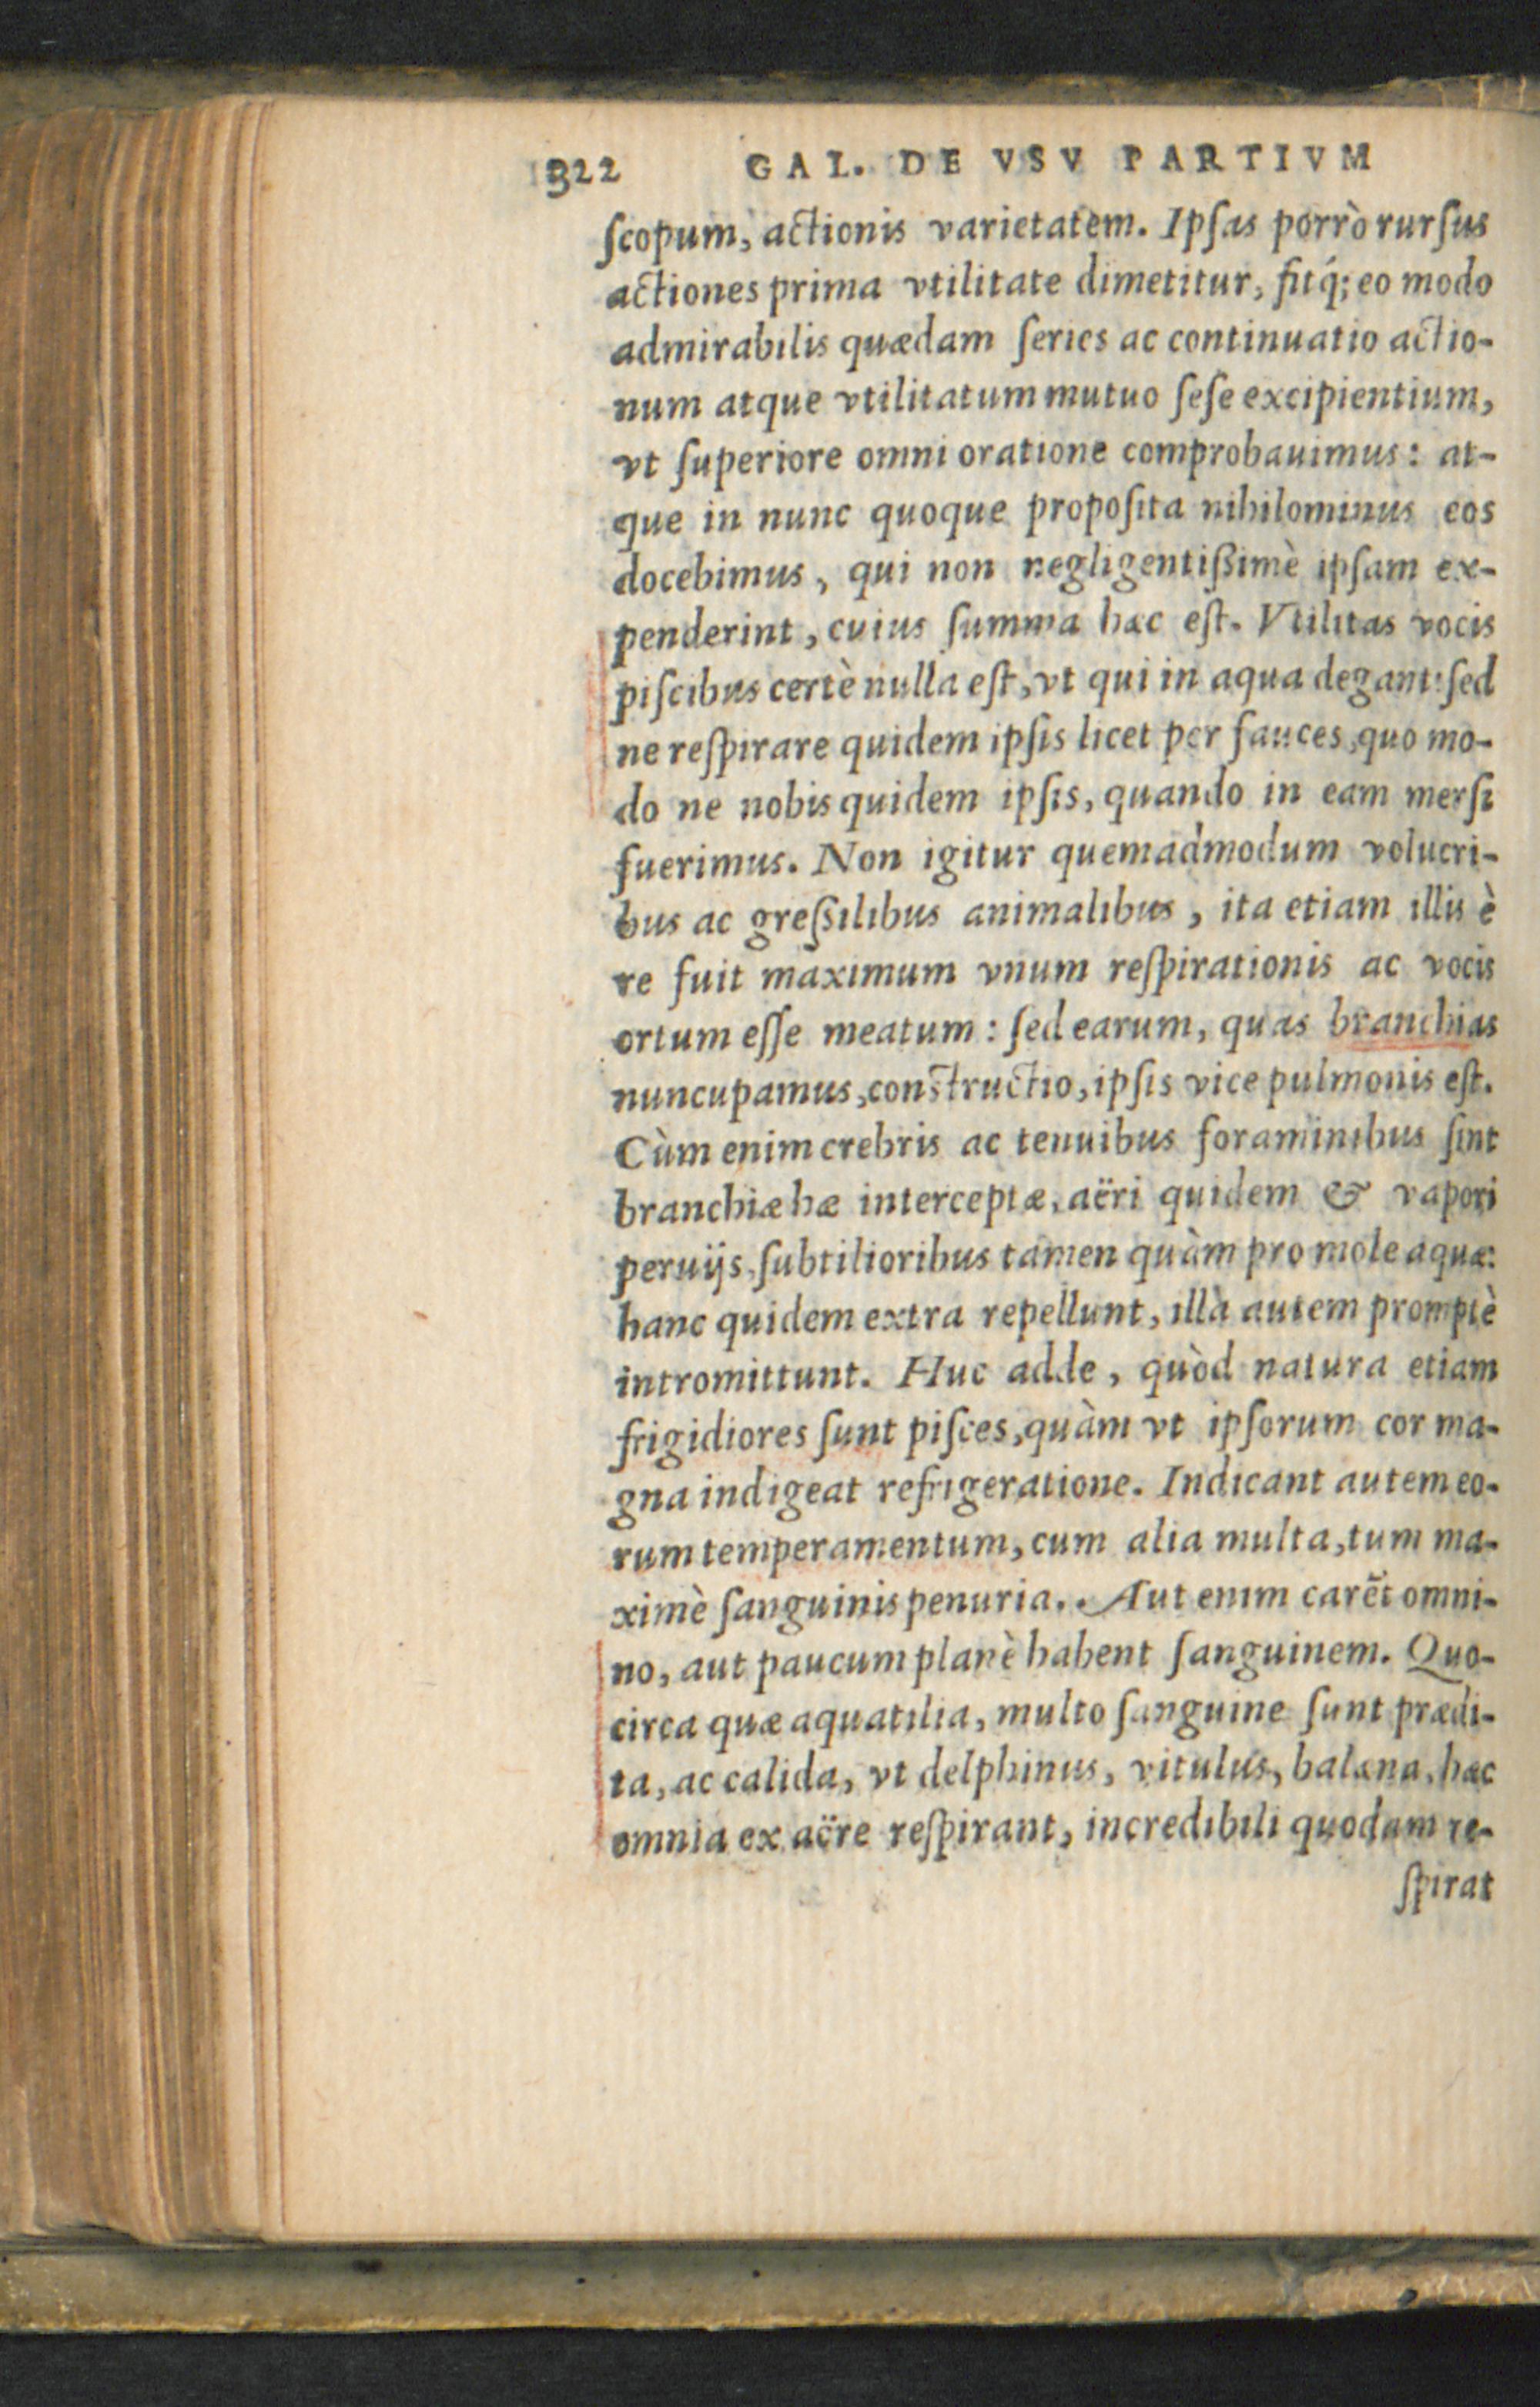 322 GAL. DE VSV PARTIVM
ſcopum, actionis varietatem. Ipſas porrò rurſus
actiones prima vtilitate dimetitur, fitq́; eo modo
admirabilis quædam ſeries ac continuatio actio-
num atque vtilitatum mutuo ſeſe excipientium,
vt ſuperiore omni oratione comprobauimus: at-
que in nunc quoque propoſita nihilominus eos
docebimus, qui non negligentißimè ipſam ex-
penderint, cuius ſumma hæc eſt. Vtilitas vocis
piſcibus certè nulla eſt, vt qui in aqua degant: ſed
ne reſpirare quidem ipſis licet per fauces, quo mo-
do ne nobis quidem ipſis, quando in eam merſi
fuerimus. Non igitur quemadmodum volucri-
bus ac greßilibus animalibus, ita etiam illis è
re fuit maximum vnum reſpirationis ac vocis
ortum eſſe meatum: ſed earum, quas branchias
nuncupamus, constructio, ipſis vice pulmonis eſt.
Cùm enim crebris ac tenuibus foraminibus ſint
branchiæ hæ interceptæ, aëri quidem & vapori
peruijs, ſubtilioribus tamen quàm pro mole aquæ:
hanc quidem extra repellunt, illà autem promptè
intromittunt. Huc adde, quòd natura etiam
frigidiores ſunt piſces, quàm vt ipſorum cor ma-
gna indigeat refrigeratione. Indicant autem eo-
rum temperamentum, cum alia multa, tum ma-
ximè ſanguinis penuria. Aut enim carẽt omni-
no, aut paucum planè habent ſanguinem. Quo-
circa quæ aquatilia, multo ſanguine ſunt prædi-
ta, ac calida, vt delphinus, vitulus, balæna, hæc
omnia ex aëre reſpirant, incredibili quodam re-
ſpirat